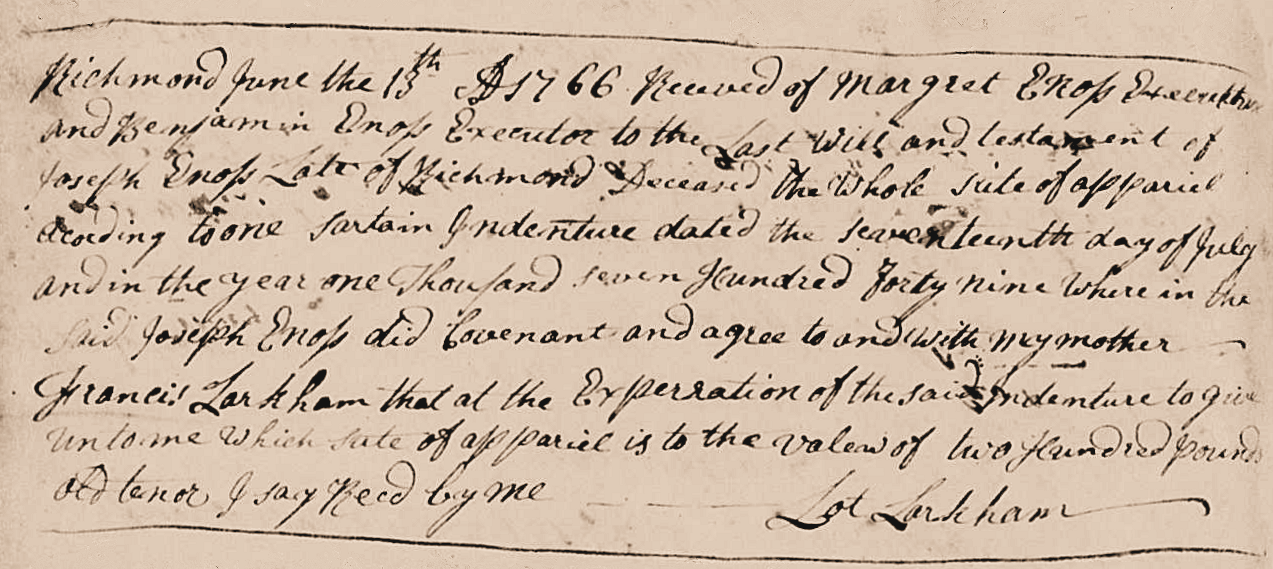 Richmond June the 13th AD 1766 Receved of Margret Enoss Executrix
and Benjamin Enoss Executor to the Last Will and testament of
Joseph Enoss Late of Richmond Deceased the Whole sute of appariel
acording to one sartain Indenture dated the seaventeenth day of July
and in the year one Thousand seven Hundred forty nine Where in the
said Joseph Enoss did Covenant and agree to and with my mother
Francis Larkham that at the Experration of the said Indenture to give
unto me Which sute of appariel is to the valew of two Hundred pounds
old tenor I say Recd by me Lot Larkham